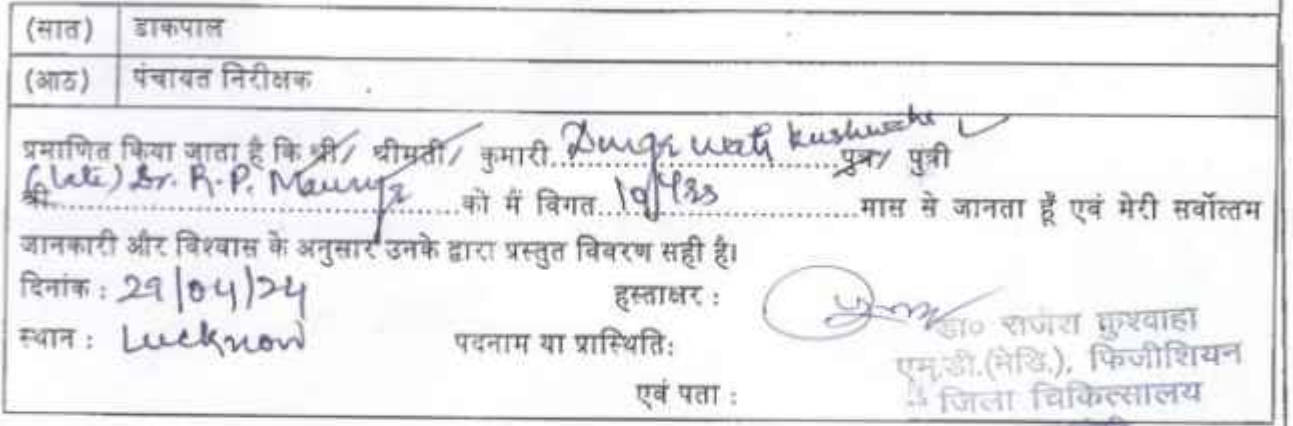 (सात) डाकपाल
(आठ) पंचायत निरीक्षक
प्रमाणित किया जाता है कि श्री/ श्रीमती/ कुमारी Durga wati Kushwaha पुत्र/ पुत्री
(late) Dr. R.P. Maurya
श्री..........को मैं विगत 10 yrs ..........मास से जानता हूँ एवं मेरी सर्वोत्तम
जानकारी और विश्वास के अनुसार उनके द्वारा प्रस्तुत विवरण सही है।
दिनांक : 29/04/24 हस्ताक्षर :
स्थान : Lucknow पदनाम या प्रास्थिति:
डा० राजेश कुश्वाहा
एम.डी.(मेडि.), फिजीशियन
एवं पता : जिला चिकित्सालय